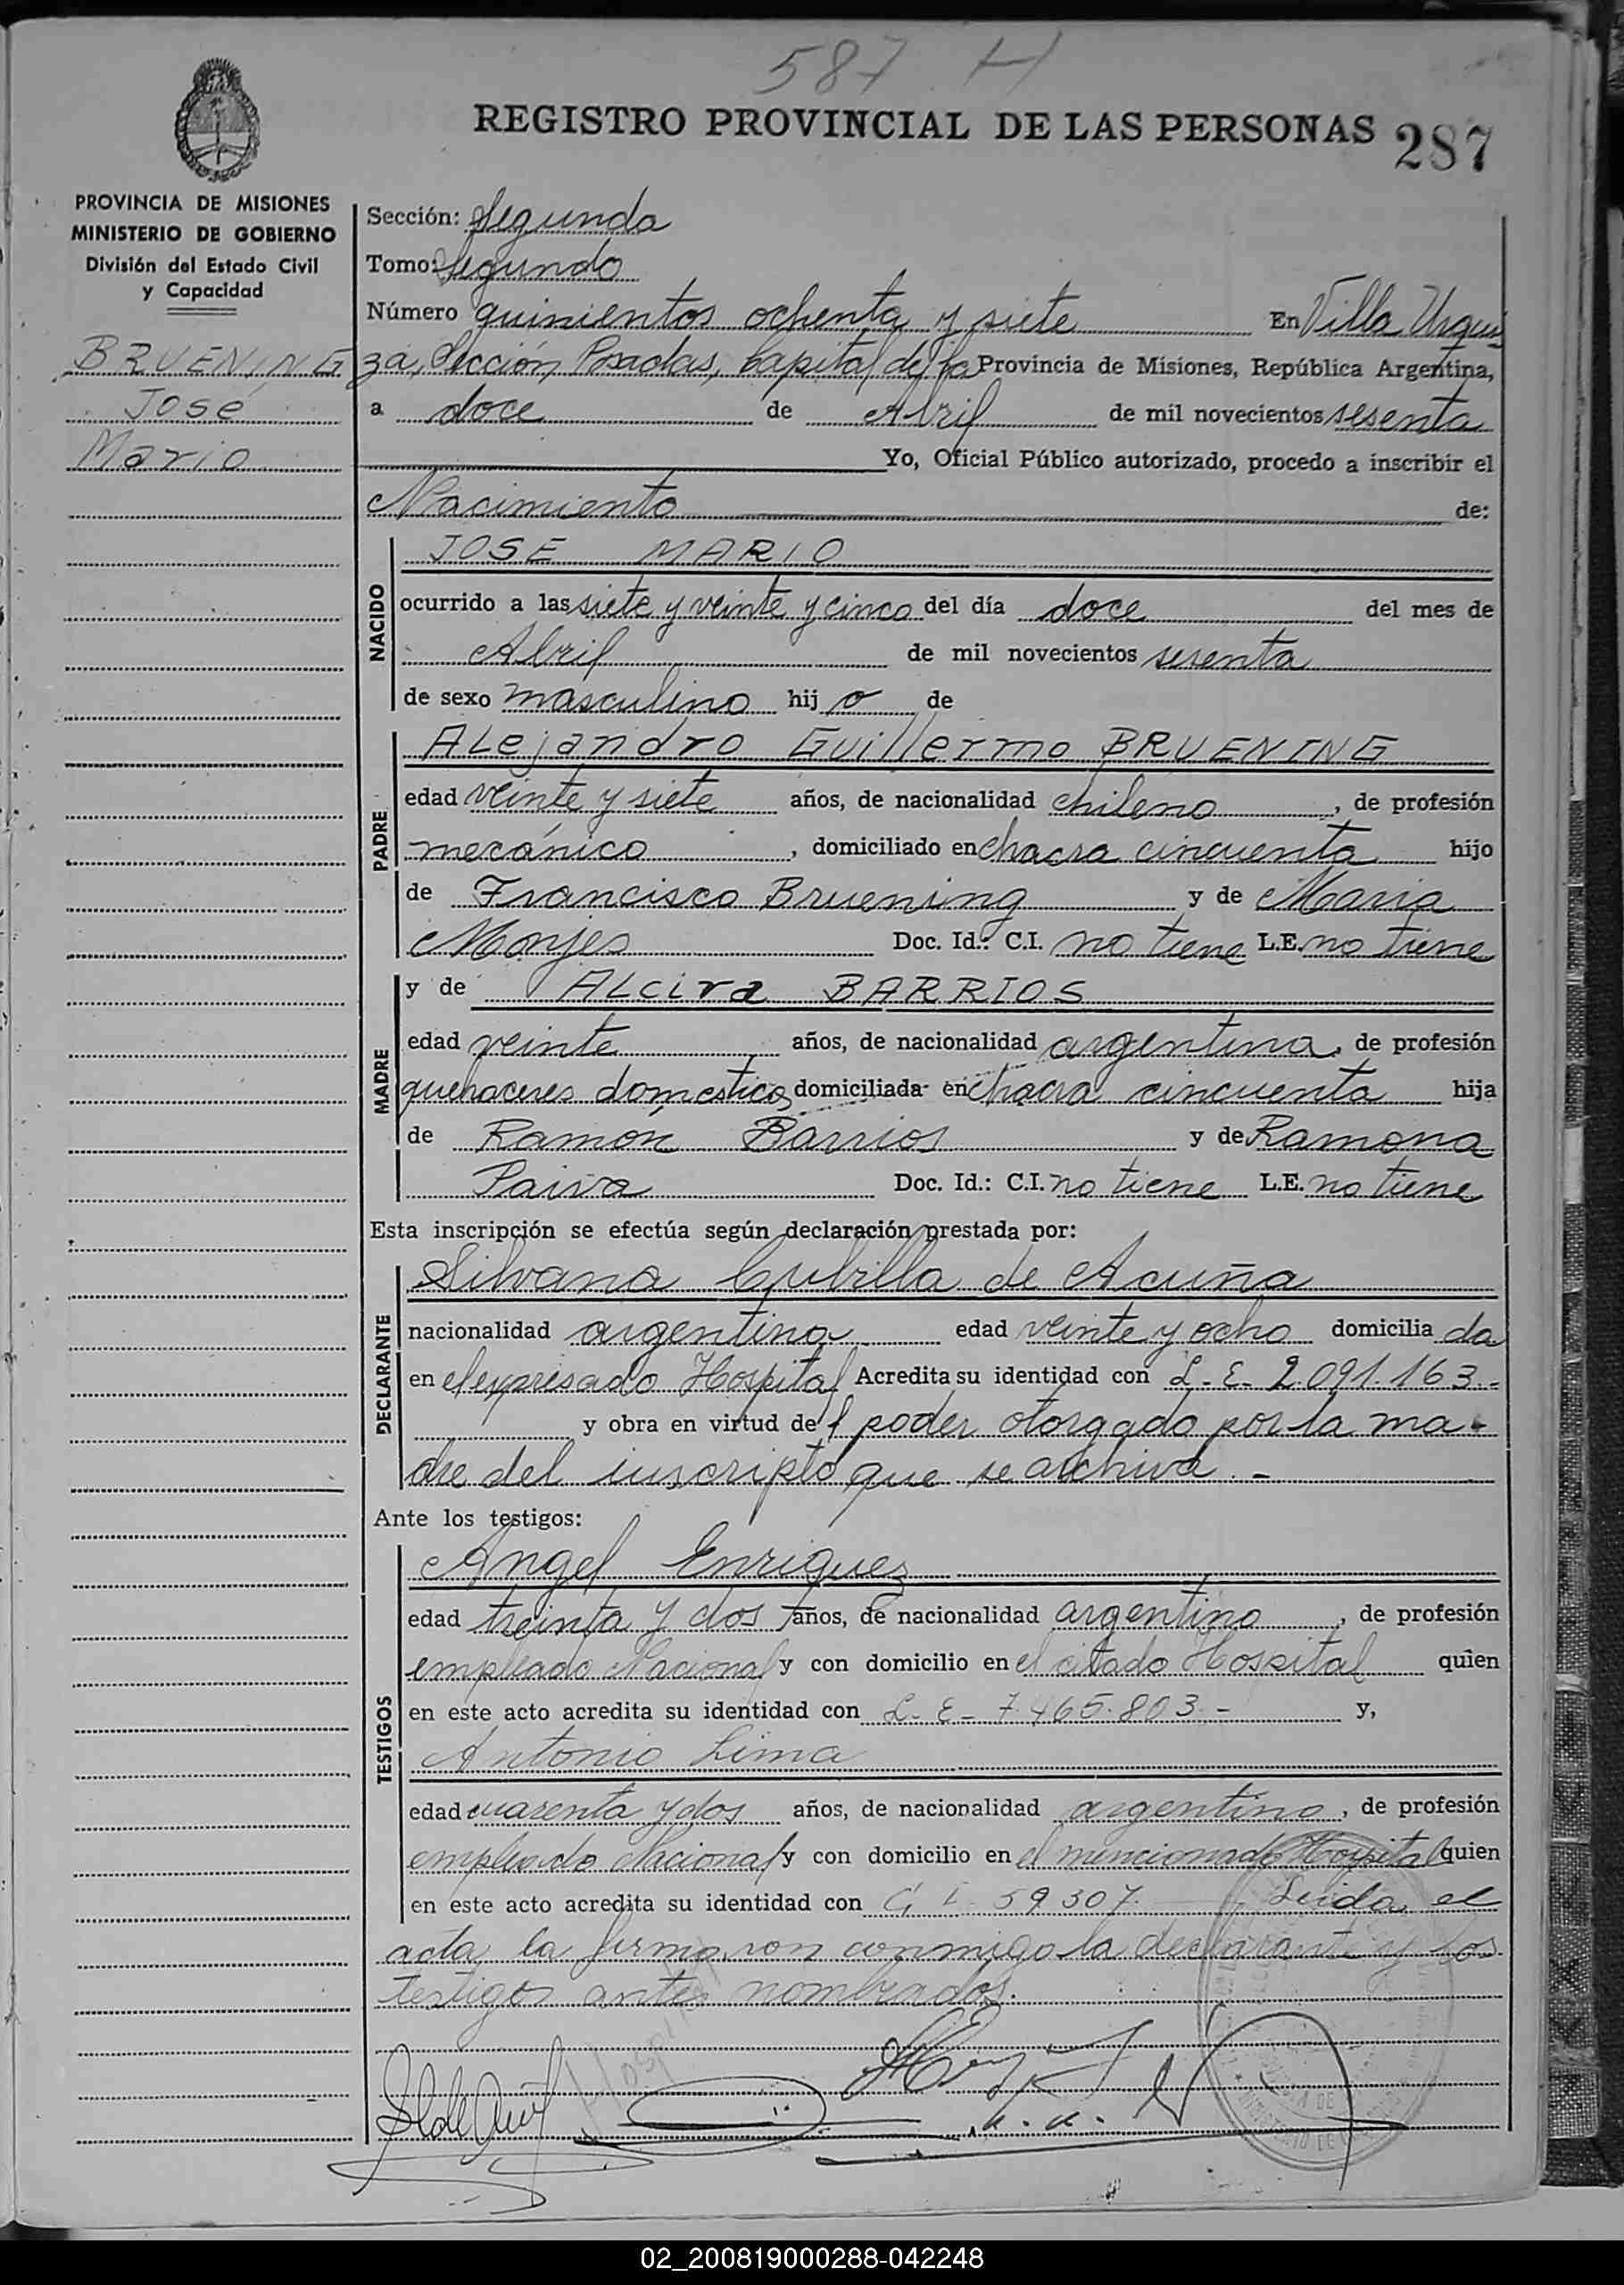 587 H
REGISTRO PROVINCIAL DE LAS PERSONAS 287
PROVINCIA DE MISIONES
MINISTERIO DE GOBIERNO
División del Estado Civil
y Capacidad
BRUENING
José
Mario
Sección: Segunda
Tomo: Segundo
Número quinientos ochenta y siete En Villa Urqui
za, Sección Posadas, Capital de la Provincia de Misiones, República Argentina,
a doce de Abril de mil novecientos sesenta
Yo, Oficial Público autorizado, procedo a inscribir el
Nacimiento de:
NACIDO
JOSE MARIO
ocurrido a las siete y veinte y cinco del día doce del mes de
Abril de mil novecientos sesenta
de sexo masculino hijo de
PADRE
ALejandro Guillermo BRUENING
edad veinte y siete años, de nacionalidad chileno, de profesión
mecánico, domiciliado en chacra cincuenta hijo
de Francisco Bruening y de Maria
Monjes Doc. Id.: C.I. no tiene L.E. no tiene
MADRE
y de ALcira BARRIOS
edad veinte años, de nacionalidad argentina, de profesión
quehaceres domesticos domiciliada en chacra cincuenta hija
de Ramón Barrios y de Ramona
Paiva Doc. Id.: C.I. no tiene L.E. no tiene
Esta inscripción se efectúa según declaración prestada por:
DECLARANTE
Silvana Cubilla de Acuña
nacionalidad argentina edad veinte y ocho domiciliada
en el expresado Hospital Acredita su identidad con L-E- 2.091.163.-
y obra en virtud del poder otorgado por la ma-
dre del inscripto que se archiva.-
Ante los testigos:
TESTIGOS
Angel Enriquez
edad treinta y dos años, de nacionalidad argentino, de profesión
empleado Nacional y con domicilio en el citado Hospital quien
en este acto acredita su identidad con L-E- 7.465.803.- y,
Antonio Lima
edad cuarenta y dos años, de nacionalidad argentino, de profesión
empleado Nacional y con domicilio en el mencionado Hospital quien
en este acto acredita su identidad con C I 59307. Leida el
acta la firmaron conmigo la declarante y los
testigos antes nombrados.
Hospital
02_200819000288-042248